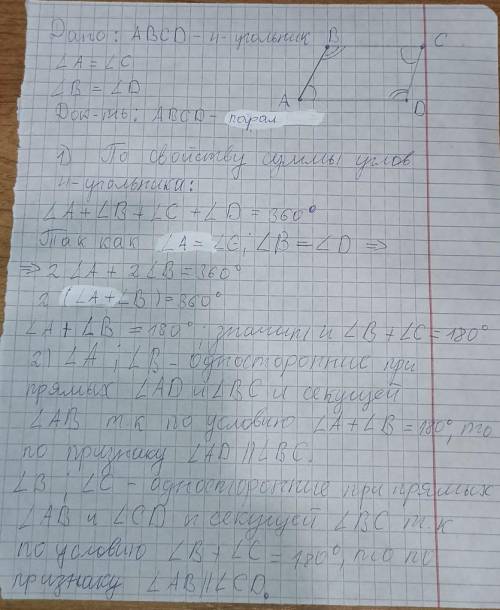 Дано: ABCD - 4-угольник
∠A = ∠C
∠B = ∠D
Док-ть: ABCD - парал
B
C
A
D
1) По свойству суммы углов
4-угольника:
∠A + ∠B + ∠C + ∠D = 360°
Так как ∠A = ∠C; ∠B = ∠D ⇒
⇒ 2∠A + 2∠B = 360°
2 (∠A + ∠B) = 360°
∠A + ∠B = 180°; значит и ∠B + ∠C = 180°
2) ∠A; ∠B - односторонние при
прямых ∠AD и ∠BC и секущей
∠AB т.к по условию ∠A + ∠B = 180°, то
по признаку ∠AD || ∠BC.
∠B; ∠C - односторонние при прямых
∠AB и ∠CD и секущей ∠BC т.к
по условию ∠B + ∠C = 180°, то по
признаку ∠AB || ∠CD.